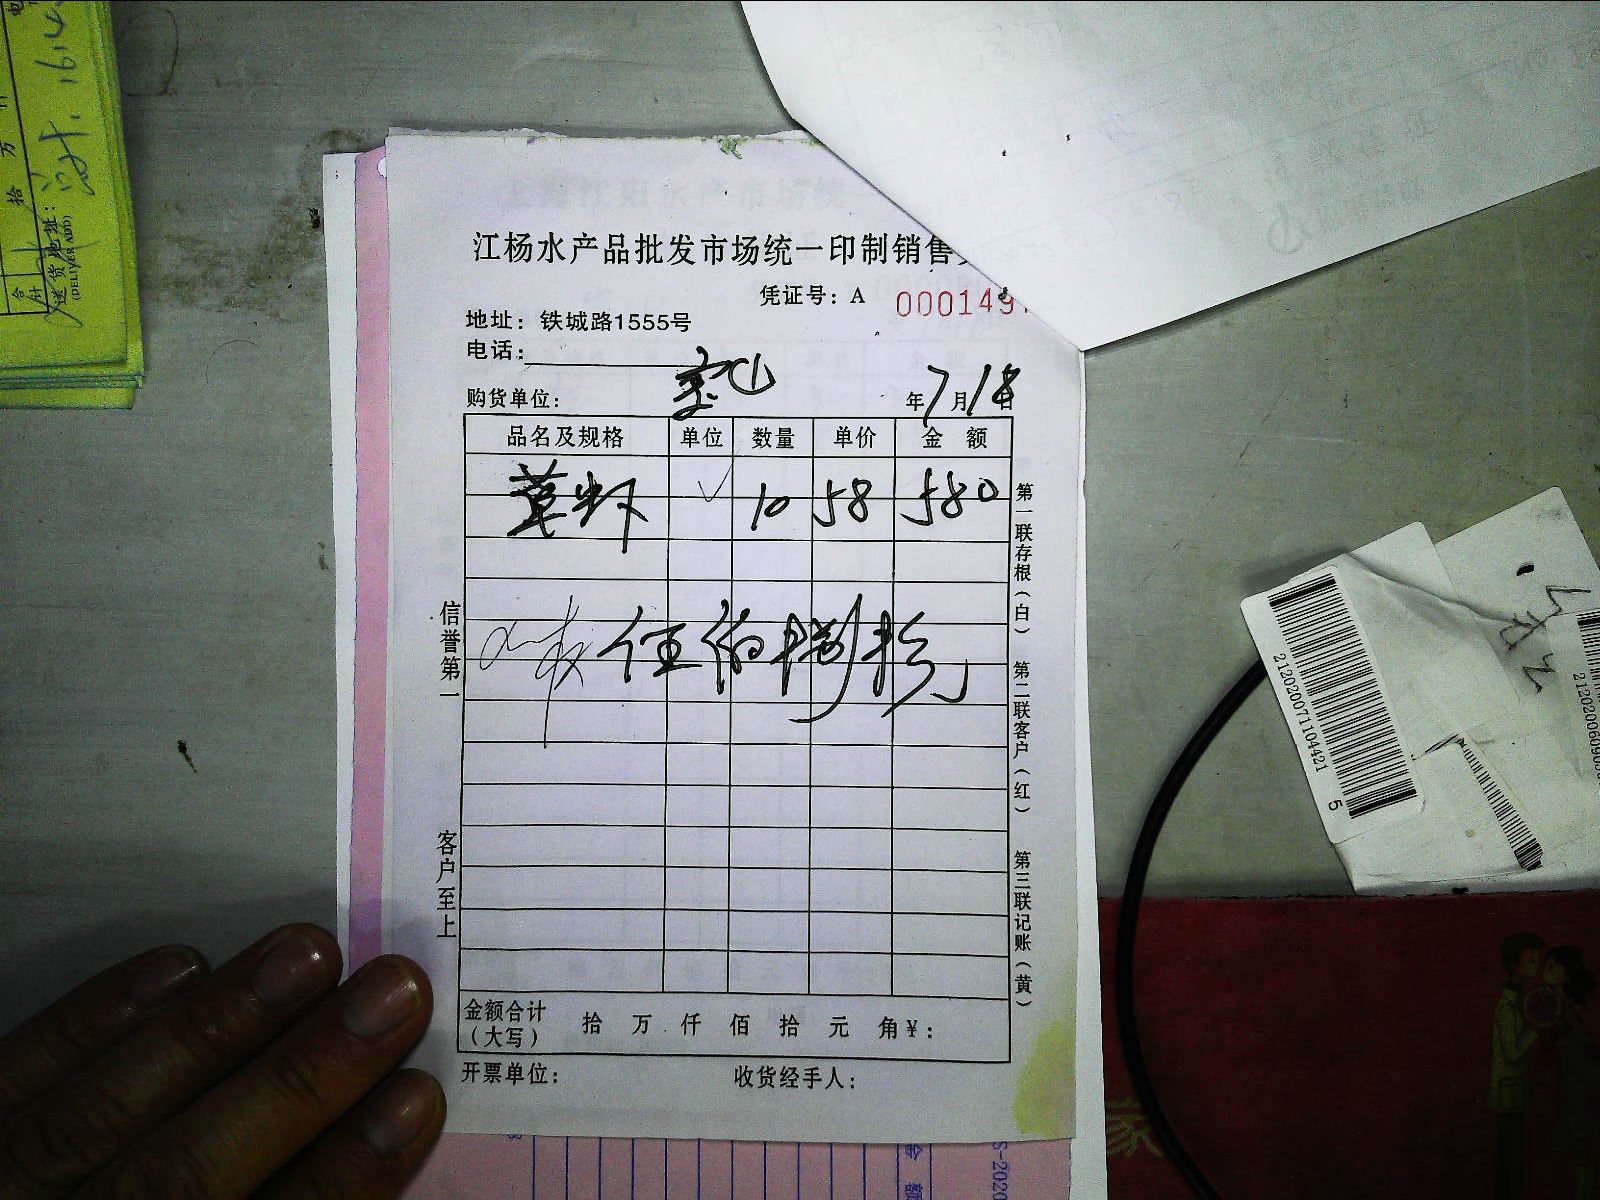 江杨水产品批发市场统一印制销售
凭证号：A 000149
地址：铁城路1555号
电话：
购货单位： 年7月18日
品名及规格 单位 数量 单价 金 额
草虾 ✓ 10 58 580
伍佰捌拾元
金额合计（大写） 拾 万 仟 佰 拾 元 角￥：
开票单位： 收货经手人：
信誉第一
客户至上
第一联存根（白） 第二联客户（红） 第三联记账（黄）
送货地址：
(DELIVER ADD)
合计
拾 万
16.4
2120200711044215
金 额
家